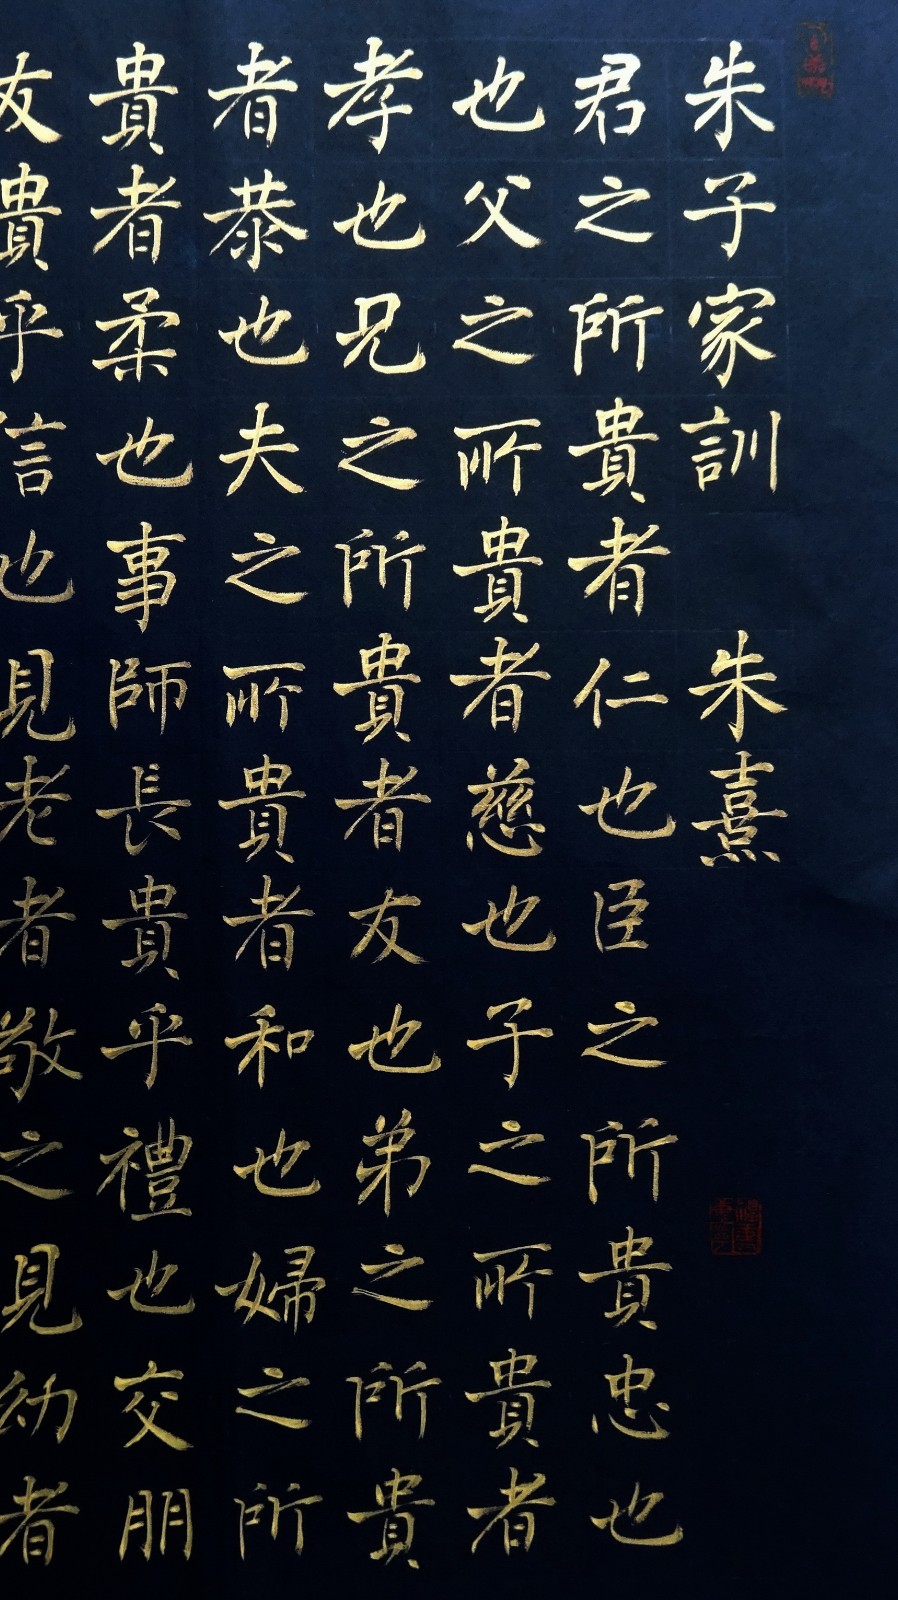 朱子家訓 朱熹
君之所貴者仁也臣之所貴忠也
也父之所貴者慈也子之所貴者
孝也兄之所貴者友也弟之所貴
者恭也夫之所貴者和也婦之所
貴者柔也事師長貴乎禮也交朋
友貴乎信也見老者敬之見幼者